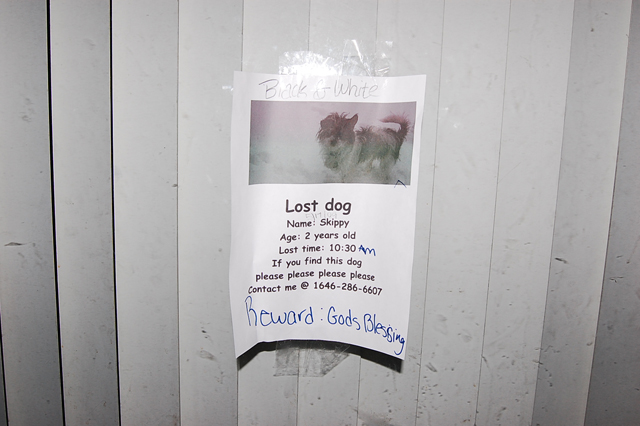 Black & White
Lost dog
Name: Skippy
Age: 2 years old
Lost time: 10:30 Am
If you find this dog
please please please please
Contact me @ 1646-286-6607
Reward: Gods Blessing